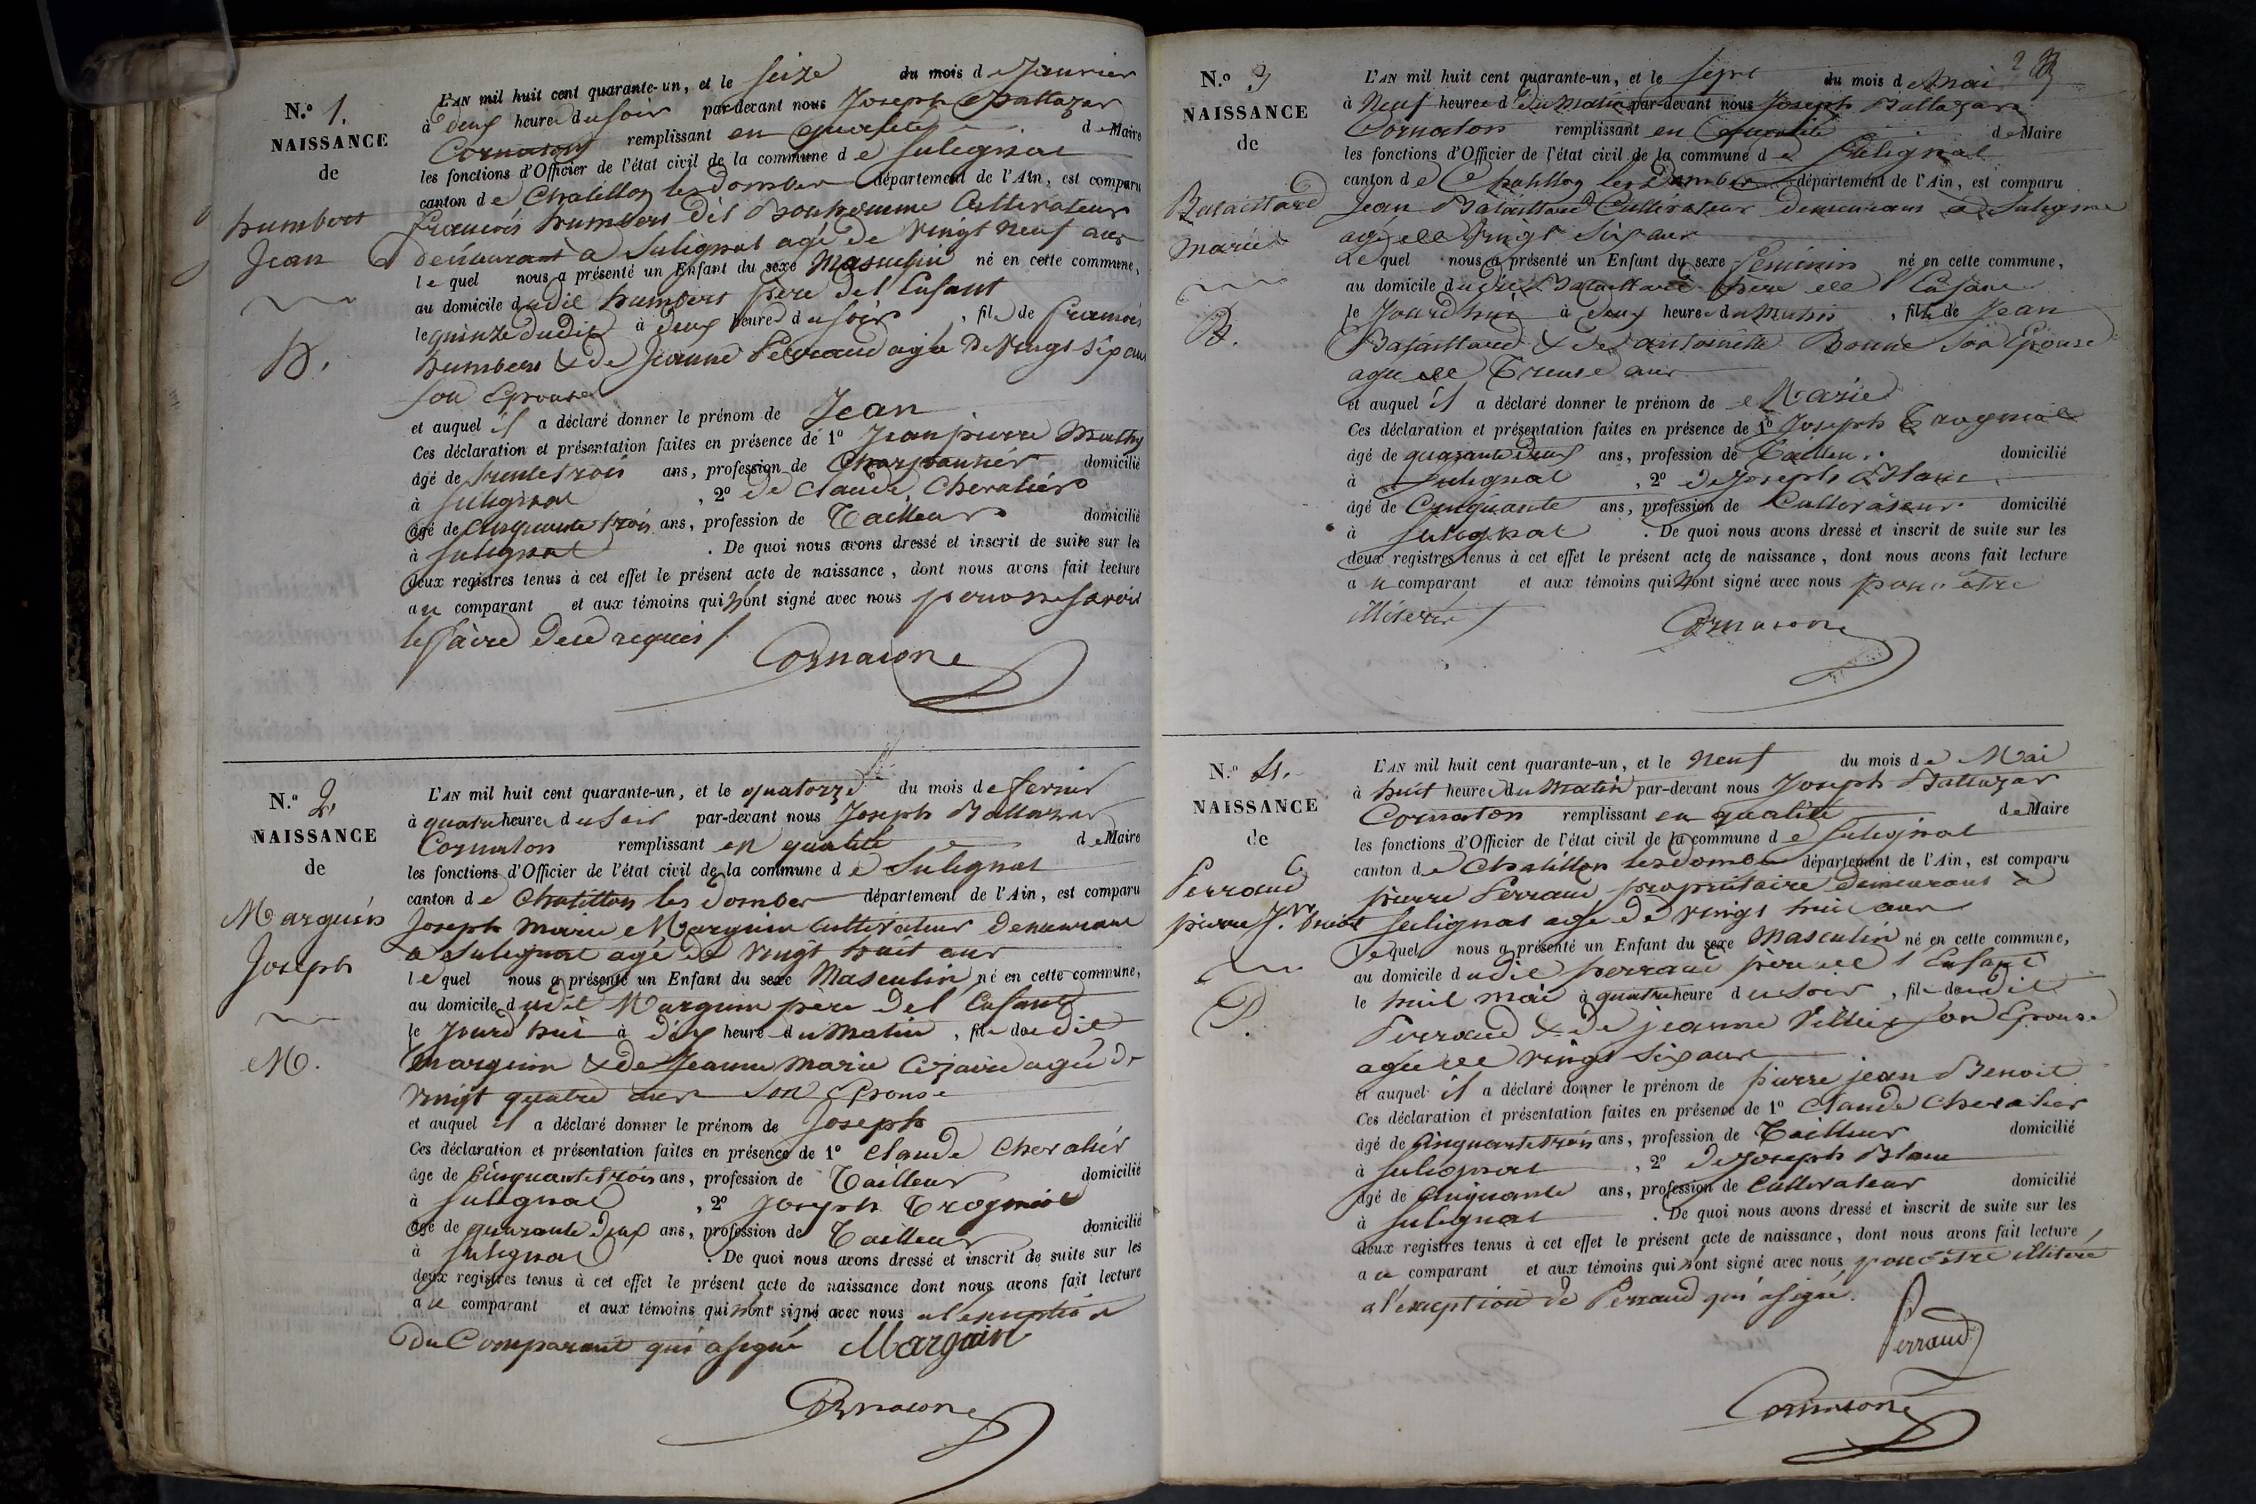 N.º 1.
NAISSANCE
de
humbert
Jean
H.
L'AN mil huit cent quarante-un, et le seize du mois de Janvier
à deux heures du soir par-devant nous Joseph Baltazar
Cornaton remplissant en qualité de Maire
les fonctions d'Officier de l'état civil de la commune de Sulignat
canton de Chatillon les Dombes département de l'Ain, est comparu
françois humbert dit Bonhomme Cultivateur
demeurant à Sulignat agé de vingt neuf ans
lequel nous a présenté un Enfant du sexe Masculin né en cette commune,
au domicile dudit humbert père de l'Enfant
le quinze dudit à deux heures du soir, fils de françois
humbert & de Jeanne Perraud agée de vingt six ans
son Epouse
et auquel il a déclaré donner le prénom de Jean
Ces déclaration et présentation faites en présence de 1º Jean pierre Mathy
âgé de trente trois ans, profession de Charpantier domicilié
à Sulignat, 2º de Claude Chevalier
âgé de cinquante trois ans, profession de Tailleur domicilié
à Sulignat. De quoi nous avons dressé et inscrit de suite sur les
deux registres tenus à cet effet le présent acte de naissance, dont nous avons fait lecture
au comparant et aux témoins qui n'ont signé avec nous pour ne savoir
le faire de ce requis /.
Cornaton
N.º 2.
NAISSANCE
de
Marguin
Joseph
M.
L'AN mil huit cent quarante-un, et le quatorze du mois de fevrier
à quatre heures du soir par-devant nous Joseph Baltazar
Cornaton remplissant en qualité de Maire
les fonctions d'Officier de l'état civil de la commune de Sulignat
canton de Chatillon les Dombes département de l'Ain, est comparu
Joseph Marie Marguin Cultivateur Demeurant
a Sulignat agé de vingt huit ans
lequel nous a présenté un Enfant du sexe Masculin né en cette commune,
au domicile dudit Marguin père de l'Enfant
le Jourd'hui à dix heures du Matin, fils dudit
Marguin & de Jeanne Marie agée de
vingt quatre ans son Epouse
et auquel il a déclaré donner le prénom de Joseph
Ces déclaration et présentation faites en présence de 1º Claude Chevalier
âgé de cinquante trois ans, profession de Tailleur domicilié
à Sulignat, 2º Joseph Trogniat
âgé de quarante deux ans, profession de Tailleur domicilié
à Sulignat. De quoi nous avons dressé et inscrit de suite sur les
deux registres tenus à cet effet le présent acte de naissance dont nous avons fait lecture
au comparant et aux témoins qui n'ont signé avec nous a l'exception
du Comparant qui a signé Marguin
Cornaton
2
N.º 3
NAISSANCE
de
Bataillard
Marie
B.
L'AN mil huit cent quarante-un, et le sept du mois de Mai
à Neuf heures du Matin par-devant nous Joseph Baltazar
Cornaton remplissant en qualité de Maire
les fonctions d'Officier de l'état civil de la commune de Sulignat
canton de Chatillon les Dombes département de l'Ain, est comparu
Jean Bataillard Cultivateur demeurant a Sulignat
agé de vingt six ans
Lequel nous a présenté un Enfant du sexe feminin né en cette commune,
au domicile dudit Bataillard père de l'Enfant
le Jourd'hui à deux heures du Matin, fille de Jean
Bataillard & de antoinette Bonne son Epouse
agée de Trente ans
et auquel il a déclaré donner le prénom de Marie
Ces déclaration et présentation faites en présence de 1º Joseph Trogniat
âgé de quarante deux ans, profession de Tailleur domicilié
à Sulignat, 2º de Joseph Blanc
âgé de Cinquante ans, profession de Cultivateur domicilié
à Sulignat. De quoi nous avons dressé et inscrit de suite sur les
deux registres tenus à cet effet le présent acte de naissance, dont nous avons fait lecture
au comparant et aux témoins qui n'ont signé avec nous pour être
/
Cornaton
N.º 4.
NAISSANCE
de
Perraud
pierre Jn. benoit
P.
L'AN mil huit cent quarante-un, et le Neuf du mois de Mai
à huit heures du Matin par-devant nous Joseph Baltazar
Cornaton remplissant en qualité de Maire
les fonctions d'Officier de l'état civil de la commune de Sulignat
canton de Chatillon les Dombes département de l'Ain, est comparu
pierre Perraud propriétaire demeurant à
Sulignat agé de vingt huit ans
Lequel nous a présenté un Enfant du sexe Masculin né en cette commune,
au domicile dudit perraud père de l'Enfant
le huit mai à quatre heures du soir, fils dudit
Perraud & de jeanne son Epouse
agée de vingt six ans
et auquel il a déclaré donner le prénom de pierre jean Benoit
Ces déclaration et présentation faites en présence de 1º Claude Chevalier
âgé de Cinquante trois ans, profession de Tailleur domicilié
à Sulignat, 2º de Joseph Blanc
âgé de Cinquante ans, profession de Cultivateur domicilié
à Sulignat. De quoi nous avons dressé et inscrit de suite sur les
deux registres tenus à cet effet le présent acte de naissance, dont nous avons fait lecture
au comparant et aux témoins qui n'ont signé avec nous pour être illiteré
a l'exception de Perraud qui a signé.
Perraud
Cornaton